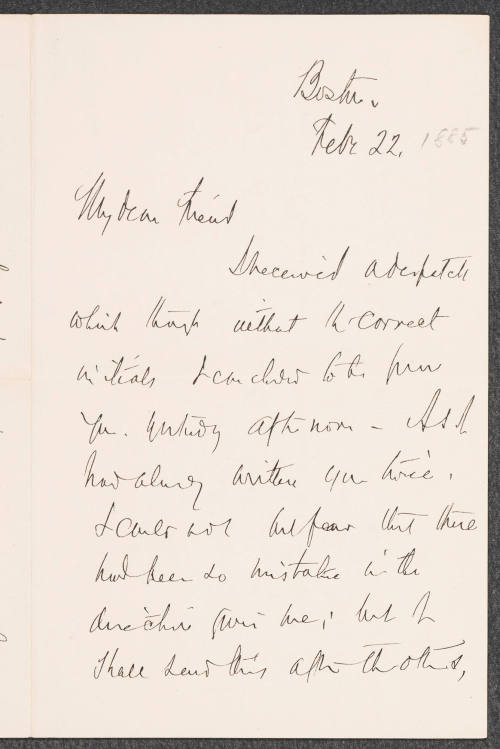 Boston,
Feb. 22. 1885
My dear Friend
I received a despatch
which though without the correct
initials I concluded to be from
you. yesterday afternoon – As I
had already written you twice,
I could not but fear that there
had been so mistake in the
direction given me; but I
shall send this after the others,